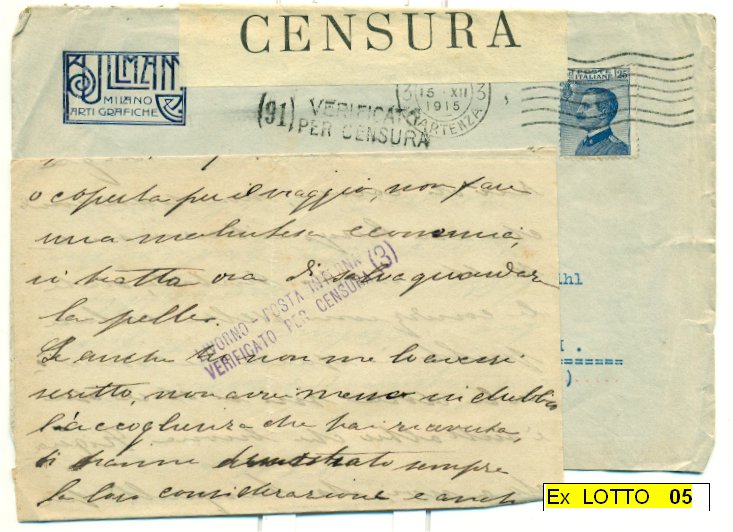 CENSURA
A. ULMANN
MILANO
ARTI GRAFICHE
(91) VERIFICATO
PER CENSURA
3 15 XII 3
1915
PARTENZA
POSTE
ITALIANE 25
o coperta per il viaggio, non fare
una malintesa economia,
si tratta ora di salvaguardare
la pelle.
Se anche tu non me lo avessi
scritto, non avrei messo in dubbio
l'accoglienza che hai ricevuta,
ti hanno dimostrato sempre
la loro considerazione e anche
LIVORNO - POSTA INTERNA (3)
VERIFICATO PER CENSURA
hl
.
=======
)
Ex LOTTO 05